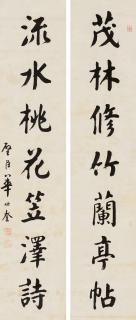 茂林修竹蘭亭帖
流水桃花笠澤詩
華世奎